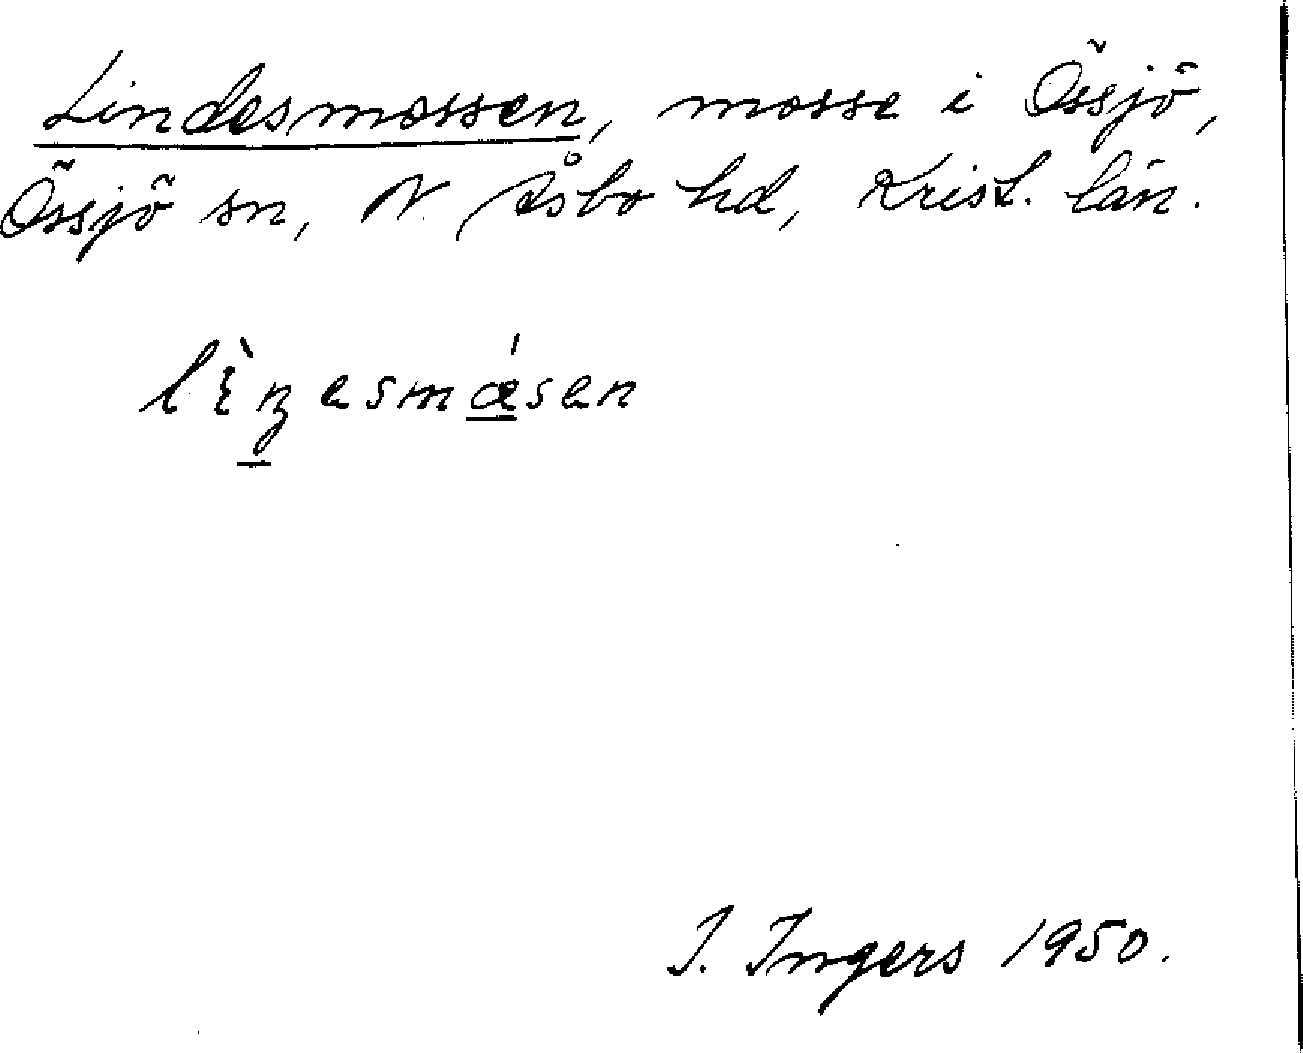 Lindesmossen, mosse i Össjö,
Össjö sn, N. Åsbo hd, Krist. län.
I. Ingers 1950.